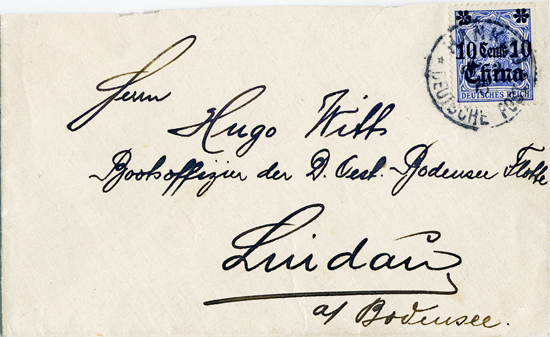 HANK
10 Cent 10
China
DEUTSCHES REICH
* DEUTSCHE POST
Herrn
Hugo Witt
Bootsoffizier der D. Oest. Bodensee Flotte
Lindau
a/ Bodensee.